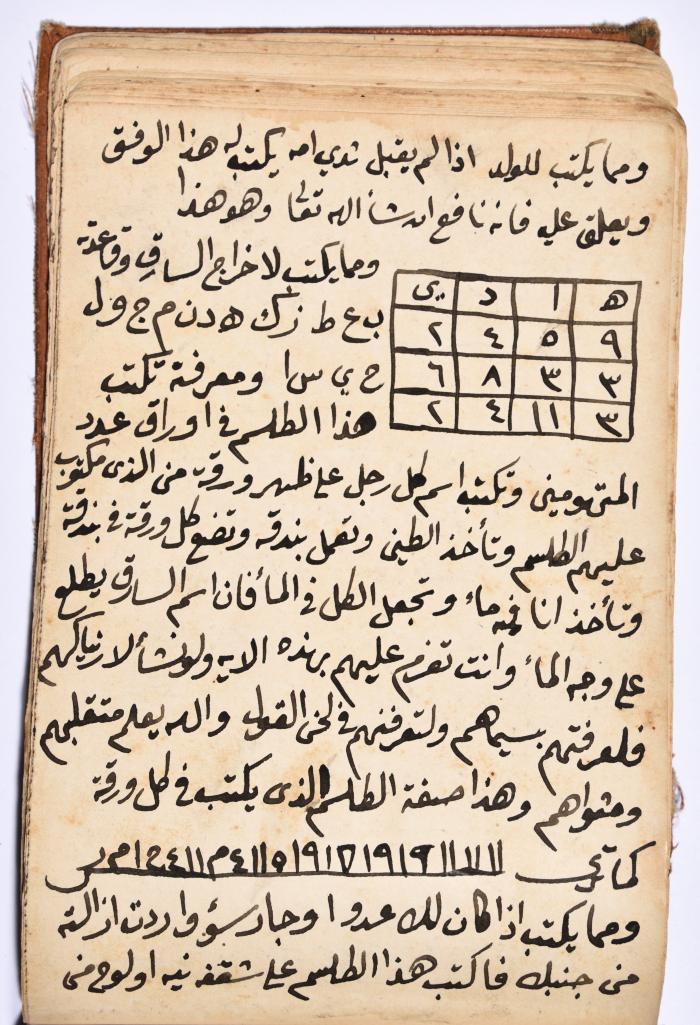 ومما يكتب للولد اذا لم يقبل ثدي امه يكتب له هذا الوفق
ويعلق عليه فانه نافع ان شأ الله تعالى وهو هذا
ه ا د ى
٩ ٥ ٤ ٢
٣ ٣ ٨ ٦
٣ ١١ ٤ ٢
ومما يكتب لاخراج السارق وقاعدته
ب ع ط ز ك ه د ن م ج و ل
ح ي س ا ومعرفة تكتب
هذا الطلسم في اوراق عدد
المتهومين وتكتب اسم كل رجل على ظهر ورقة من الذى مكتوب
عليهم الطلسم وتأخذ الطين وتعمل بندقه وتضع كل ورقة في بندقة
وتأخذ انا فيه ماء وتجعل الكل في المأ فان اسم السارق يطلع
على وجه المأ وانت تعزم عليهم بهذه الايه ولو نشأ لاريناكهم
فلعرفتهم بسيماهم ولتعرفنهم في لحن القول والله يعلم متقلبهم
ومثواهم وهذا صفة الطلسم الذى يكتب في كل ورقة
كما ترى
ومما يكتب اذا كان لك عدوا وجار سؤ واردت ازالته
من جنبك فاكتب هذا الطلسم على شقفه نيه او لوح من